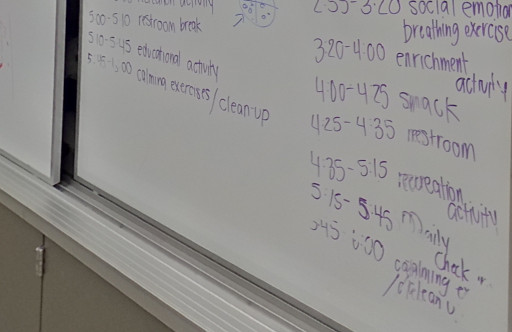 activity
5:00-5:10 restroom break
5:10-5:45 educational activity
5:45-6:00 calming exercises/clean-up
2:55-3:20 social emotion
breathing exercise
3:20-4:00 enrichment
activity
4:00-4:25 snack
4:25-4:35 restroom
4:35-5:15 recreation
activity
5:15-5:45 Daily
check
5:45-6:00 calming
/clean